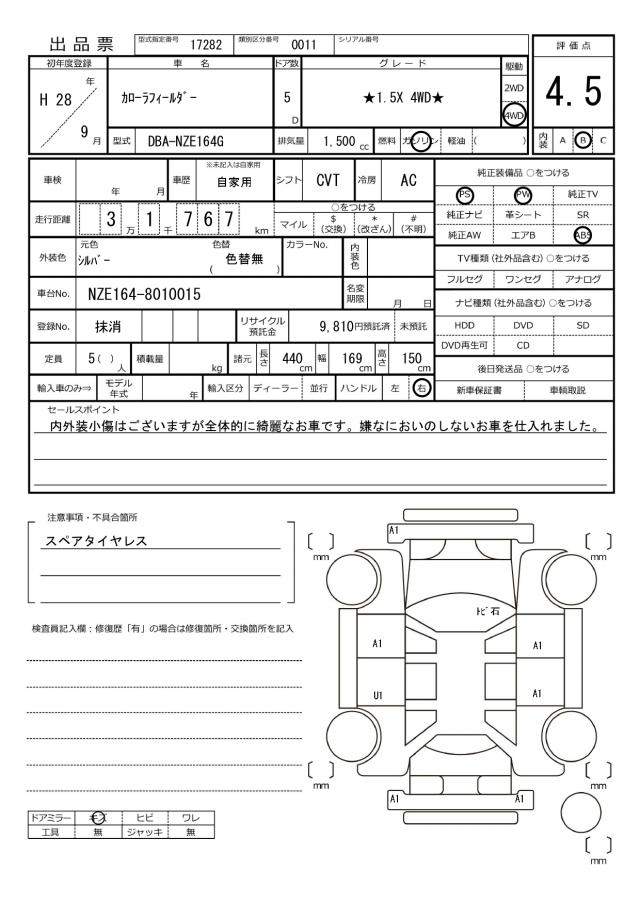 出品票 型式指定番号 17282 類別区分番号 0011 シリアル番号
初年度登録 車名 ドア数 グレード 駆動 評価点
H 28 年 9 月 ｶﾛｰﾗﾌｨｰﾙﾀﾞｰ 5 D ★1.5X 4WD★ 2WD 4WD 4.5
型式 DBA-NZE164G 排気量 1,500 cc 燃料 ガソリン 軽油 ( ) 内装 A B C
車検 年 月 車歴 ※未記入は自家用 自家用 シフト CVT 冷房 AC
純正装備品 ○をつける
PS PW 純正TV
走行距離 3 万 1 千 7 6 7 km ○をつける
マイル $ (交換) * (改ざん) # (不明)
純正ナビ 革シート SR
純正AW エアB ABS
外装色 元色 ｼﾙﾊﾞｰ 色替 ( 色替無 ) カラーNo. 内装色
TV種類 (社外品含む) ○をつける
フルセグ ワンセグ アナログ
車台No. NZE164-8010015 名変期限 月 日
ナビ種類 (社外品含む) ○をつける
登録No. 抹消 リサイクル預託金 9,810 円預託済 未預託
HDD DVD SD
DVD再生可 CD
定員 5 ( ) 人 積載量 kg 諸元 長さ 440 cm 幅 169 cm 高さ 150 cm
後日発送品 ○をつける
輸入車のみ⇒ モデル年式 年 輸入区分 ディーラー 並行 ハンドル 左 右
新車保証書 車輌取説
セールスポイント
内外装小傷はございますが全体的に綺麗なお車です。嫌なにおいのしないお車を仕入れました。
注意事項・不具合箇所
スペアタイヤレス
検査員記入欄：修復歴「有」の場合は修復箇所・交換箇所を記入
A1
mm mm
ﾄﾋﾞ石
A1 A1
U1 A1
mm mm
A1 A1
mm
ドアミラー キズ ヒビ ワレ
工具 無 ジャッキ 無